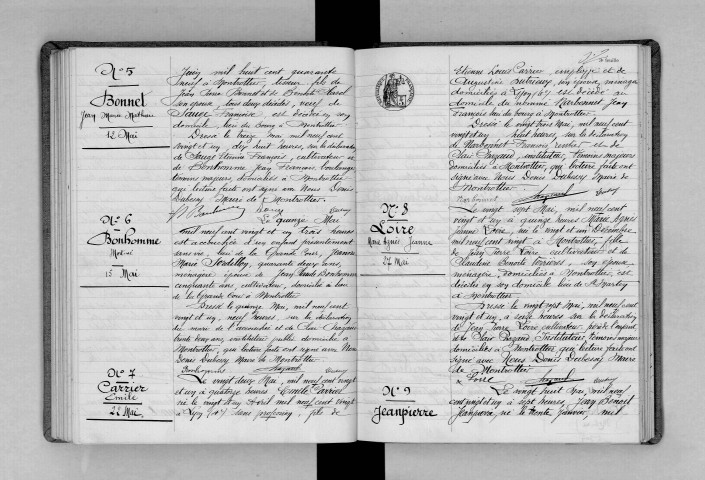 N° 5
Bonnet
Jean Marie Mathieu
12 Mai
Juin mil huit cent quarante
neuf à Montrottier, tisseur, fils de
Jean Louis Bonnet et de Benoîte
son épouse, tous deux décédés, veuf de
Françoise est décédé en son
domicile, lieu du bourg à Montrottier
Dressé le treize Mai mil neuf cent
vingt et un, dix huit heures, sur la déclaration
de Etienne François, cultivateur et
de Bonhomme Jean François boulanger
témoins majeurs domiciliés à Montrottier
qui lecture faite ont signé avec Nous Denis
Dubessy Maire de Montrottier.
N° 6
Bonhomme
Mort-né
15 Mai
Le quinze Mai
mil neuf cent vingt et un trois heures
est accouchée d'un enfant présentement
sans vie, lieu de la Grande Cour, Jeanne
Marie quarante deux ans,
ménagère épouse de Jean Claude Bonhomme
cinquante ans, cultivateur, domiciliés à lieu
de la Grande Cour à Montrottier
Dressé le quinze Mai, mil neuf cent
vingt et un, neuf heures, sur la déclaration
du mari de l'accouchée et de
trente ans, instituteur public domicilié à
Montrottier, qui lecture faite ont signé avec Nous
Denis Dubessy Maire de Montrottier
Bonhomme
N° 7
Carrier
Emile
22 Mai
Le vingt deux Mai, mil neuf cent vingt
et un à quatorze heures Emile Carrier
né le vingt et un Avril mil neuf cent vingt
à Lyon sans profession, fils de
Etienne Louis Carrier employé et de
Augustine son épouse, ménagère
domiciliés à Lyon est décédé au
domicile du nommé Narbonnet Jean
François lieu du bourg à Montrottier
Dressé le vingt trois Mai, mil neuf cent
vingt et un huit heures, sur la déclaration
de Narbonnet François rentier et de
instituteur, témoins majeurs
domiciliés à Montrottier, qui lecture faite ont
signé avec Nous Denis Dubessy Maire de
Montrottier
Narbonnet
N° 8
Loire
Marie Agnès Jeanne
27 Mai
Le vingt sept Mai, mil neuf cent
vingt et un à quinze heures Marie Agnès
Jeanne Loire, née le vingt et un Décembre
mil neuf cent vingt à Montrottier, fille
de Jean Pierre Loire cultivateur et de
Claudine Benoîte son épouse
ménagère, domiciliés à Montrottier, est
décédée en son domicile lieu de
à Montrottier
Dressé le vingt sept Mai, mil neuf cent
vingt et un, à seize heures sur la déclaration
de Jean Pierre Loire cultivateur, père de l'enfant
et de instituteur, témoins majeurs
domiciliés à Montrottier, qui lecture faite ont
signé avec Nous Denis Dubessy Maire
de Montrottier
Loire
N° 9
Jeanpierre
Le vingt huit Mai, mil neuf
cent vingt et un à sept heures, Jean Benoît
Jeanpierre, né le trente Janvier, mil